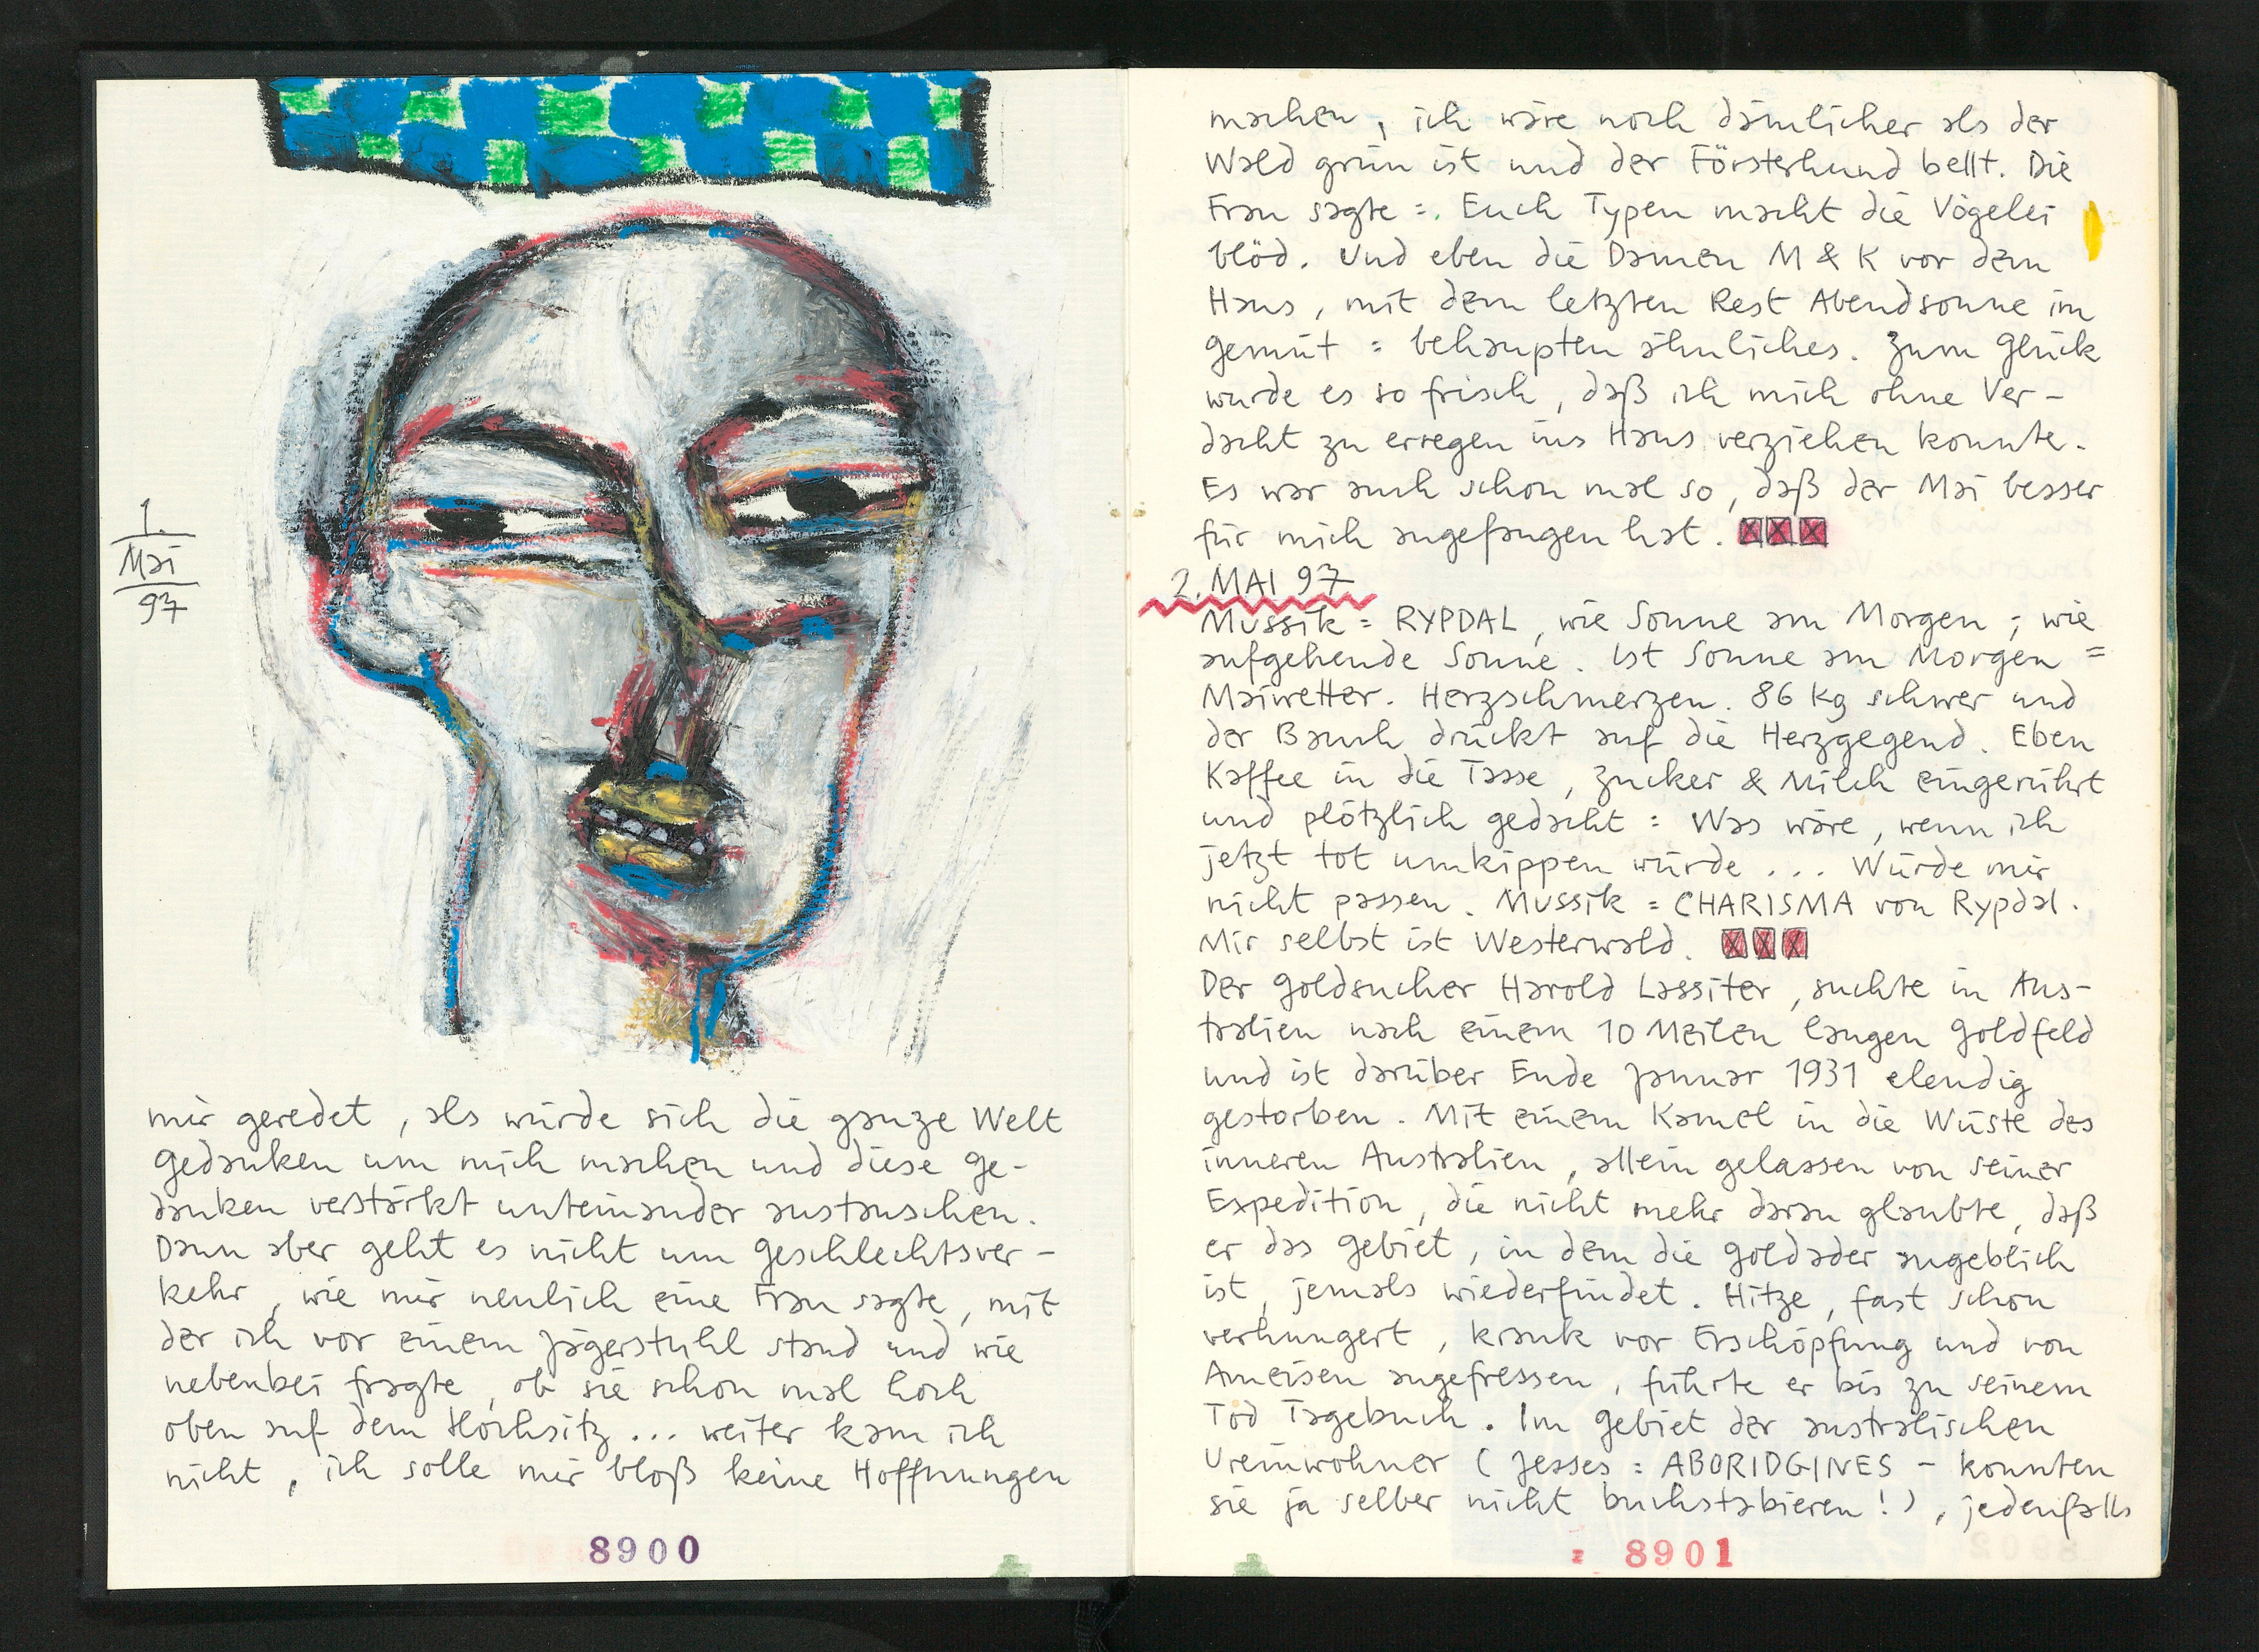 1.
Mai
97
mir geredet, als würde sich die ganze Welt
Gedanken um mich machen und diese Ge-
danken verstärkt unteinander austauschen.
Dann aber geht es nicht um Geschlechtsver-
kehr, wie mir neulich eine Frau sagte, mit
der ich vor einem Jägerstuhl stand und wie
nebenbei fragte, ob sie schon mal hoch
oben auf dem Hochsitz... weiter kam ich
nicht, ich solle mir bloß keine Hoffnungen
8900
machen, ich wäre noch dämlicher als der
Wald grün ist und der Försterhund bellt. Die
Frau sagte =. Euch Typen macht die Vögelei
blöd. Und eben die Damen M & K vor dem
Haus, mit dem letzten Rest Abendsonne im
Gemüt = behaupten ähnliches. Zum Glück
wurde es so frisch, daß ich mich ohne Ver-
dacht zu erregen ins Haus verziehen konnte.
Es war auch schon mal so, daß der Mai besser
für mich angefangen hat. XXX
2. MAI 97
Mussik = RYPDAL, wie Sonne am Morgen; wie
aufgehende Sonne. Ist Sonne am Morgen =
Maiwetter. Herzschmerzen. 86 kg schwer und
der Bauch drückt auf die Herzgegend. Eben
Kaffee in die Tasse, Zucker & Milch eingerührt
und plötzlich gedacht = Was wäre, wenn ich
jetzt tot umkippen würde... Würde mir
nicht passen. Mussik = CHARISMA von Rypdal.
Mir selbst ist Westerwald. XXX
Der Goldsucher Harold Lassiter, suchte in Aus-
tralien nach einem 10 Meilen langen Goldfeld
und ist darüber Ende Januar 1931 elendig
gestorben. Mit einem Kamel in die Wüste des
inneren Australien, allein gelassen von seiner
Expedition, die nicht mehr daran glaubte, daß
er das Gebiet, in dem die Goldader angeblich
ist, jemals wiederfindet. Hitze, fast schon
verhungert, krank vor Erschöpfung und von
Ameisen angefressen, führte er bis zu seinem
Tod Tagebuch. Im Gebiet der australischen
Ureinwohner (Jesses = ABORIDGINES - konnten
sie ja selber nicht buchstabieren!), jedenfalls
8901